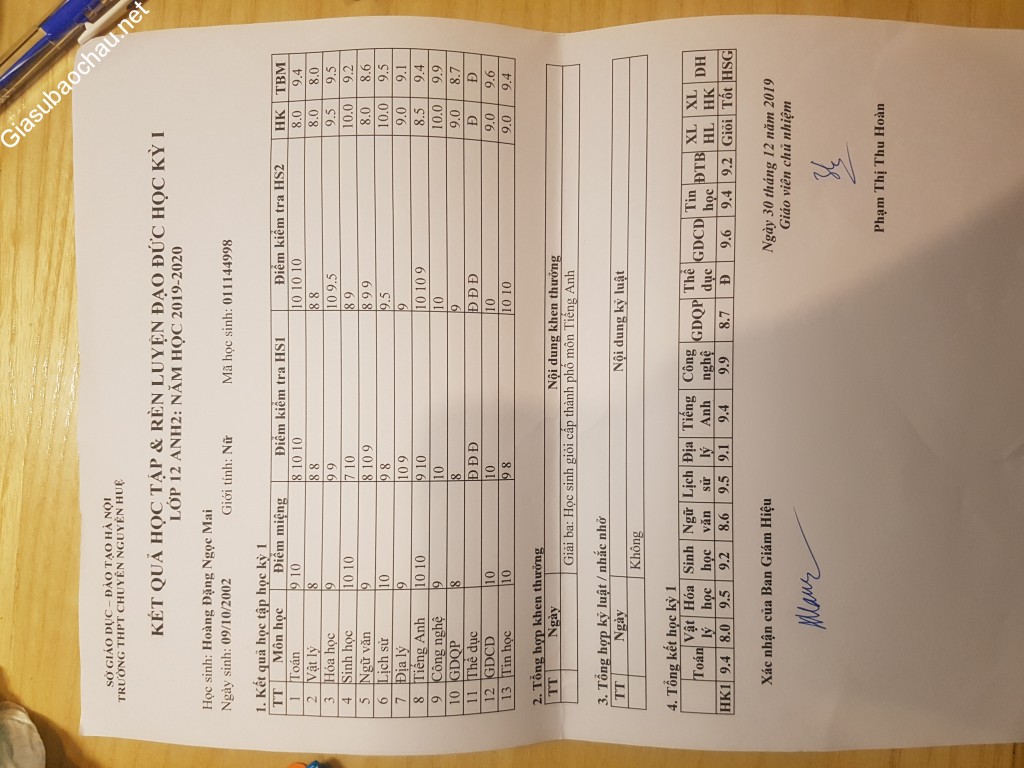 Giasubaochau.net
SỞ GIÁO DỤC – ĐÀO TẠO HÀ NỘI
TRƯỜNG THPT CHUYÊN NGUYỄN HUỆ
KẾT QUẢ HỌC TẬP & RÈN LUYỆN ĐẠO ĐỨC HỌC KỲ I
LỚP 12 ANH2: NĂM HỌC 2019-2020
Học sinh: Hoàng Đặng Ngọc Mai
Ngày sinh: 09/10/2002 Giới tính: Nữ Mã học sinh: 011144998
1. Kết quả học tập học kỳ 1
TT Môn học Điểm miệng Điểm kiểm tra HS1 Điểm kiểm tra HS2 HK TBM
1 Toán 9 10 8 10 10 10 10 10 8.0 9.4
2 Vật lý 8 8 8 8 8 8.0 8.0
3 Hóa học 9 9 9 10 9.5 9.5 9.5
4 Sinh học 10 10 7 10 8 9 10.0 9.2
5 Ngữ văn 9 8 10 9 8 9 9 8.0 8.6
6 Lịch sử 10 9 8 9.5 10.0 9.5
7 Địa lý 9 10 9 9 9.0 9.1
8 Tiếng Anh 10 10 9 10 10 10 9 8.5 9.4
9 Công nghệ 9 10 10 10.0 9.9
10 GDQP 8 8 9 9.0 8.7
11 Thể dục Đ Đ Đ Đ Đ Đ Đ Đ
12 GDCD 10 10 10 9.0 9.6
13 Tin học 10 9 8 10 10 9.0 9.4
2. Tổng hợp khen thưởng
TT Ngày Nội dung khen thưởng
Giải ba: Học sinh giỏi cấp thành phố môn Tiếng Anh
3. Tổng hợp kỷ luật / nhắc nhở
TT Ngày Nội dung kỷ luật
Không
4. Tổng kết học kỳ 1
Toán Vật lý Hóa học Sinh học Ngữ văn Lịch sử Địa lý Tiếng Anh Công nghệ GDQP Thể dục GDCD Tin học ĐTB XL HL XL HK DH
HK1 9.4 8.0 9.5 9.2 8.6 9.5 9.1 9.4 9.9 8.7 Đ 9.6 9.4 9.2 Giỏi Tốt HSG
Ngày 30 tháng 12 năm 2019
Xác nhận của Ban Giám Hiệu Giáo viên chủ nhiệm
Phạm Thị Thu Hoàn